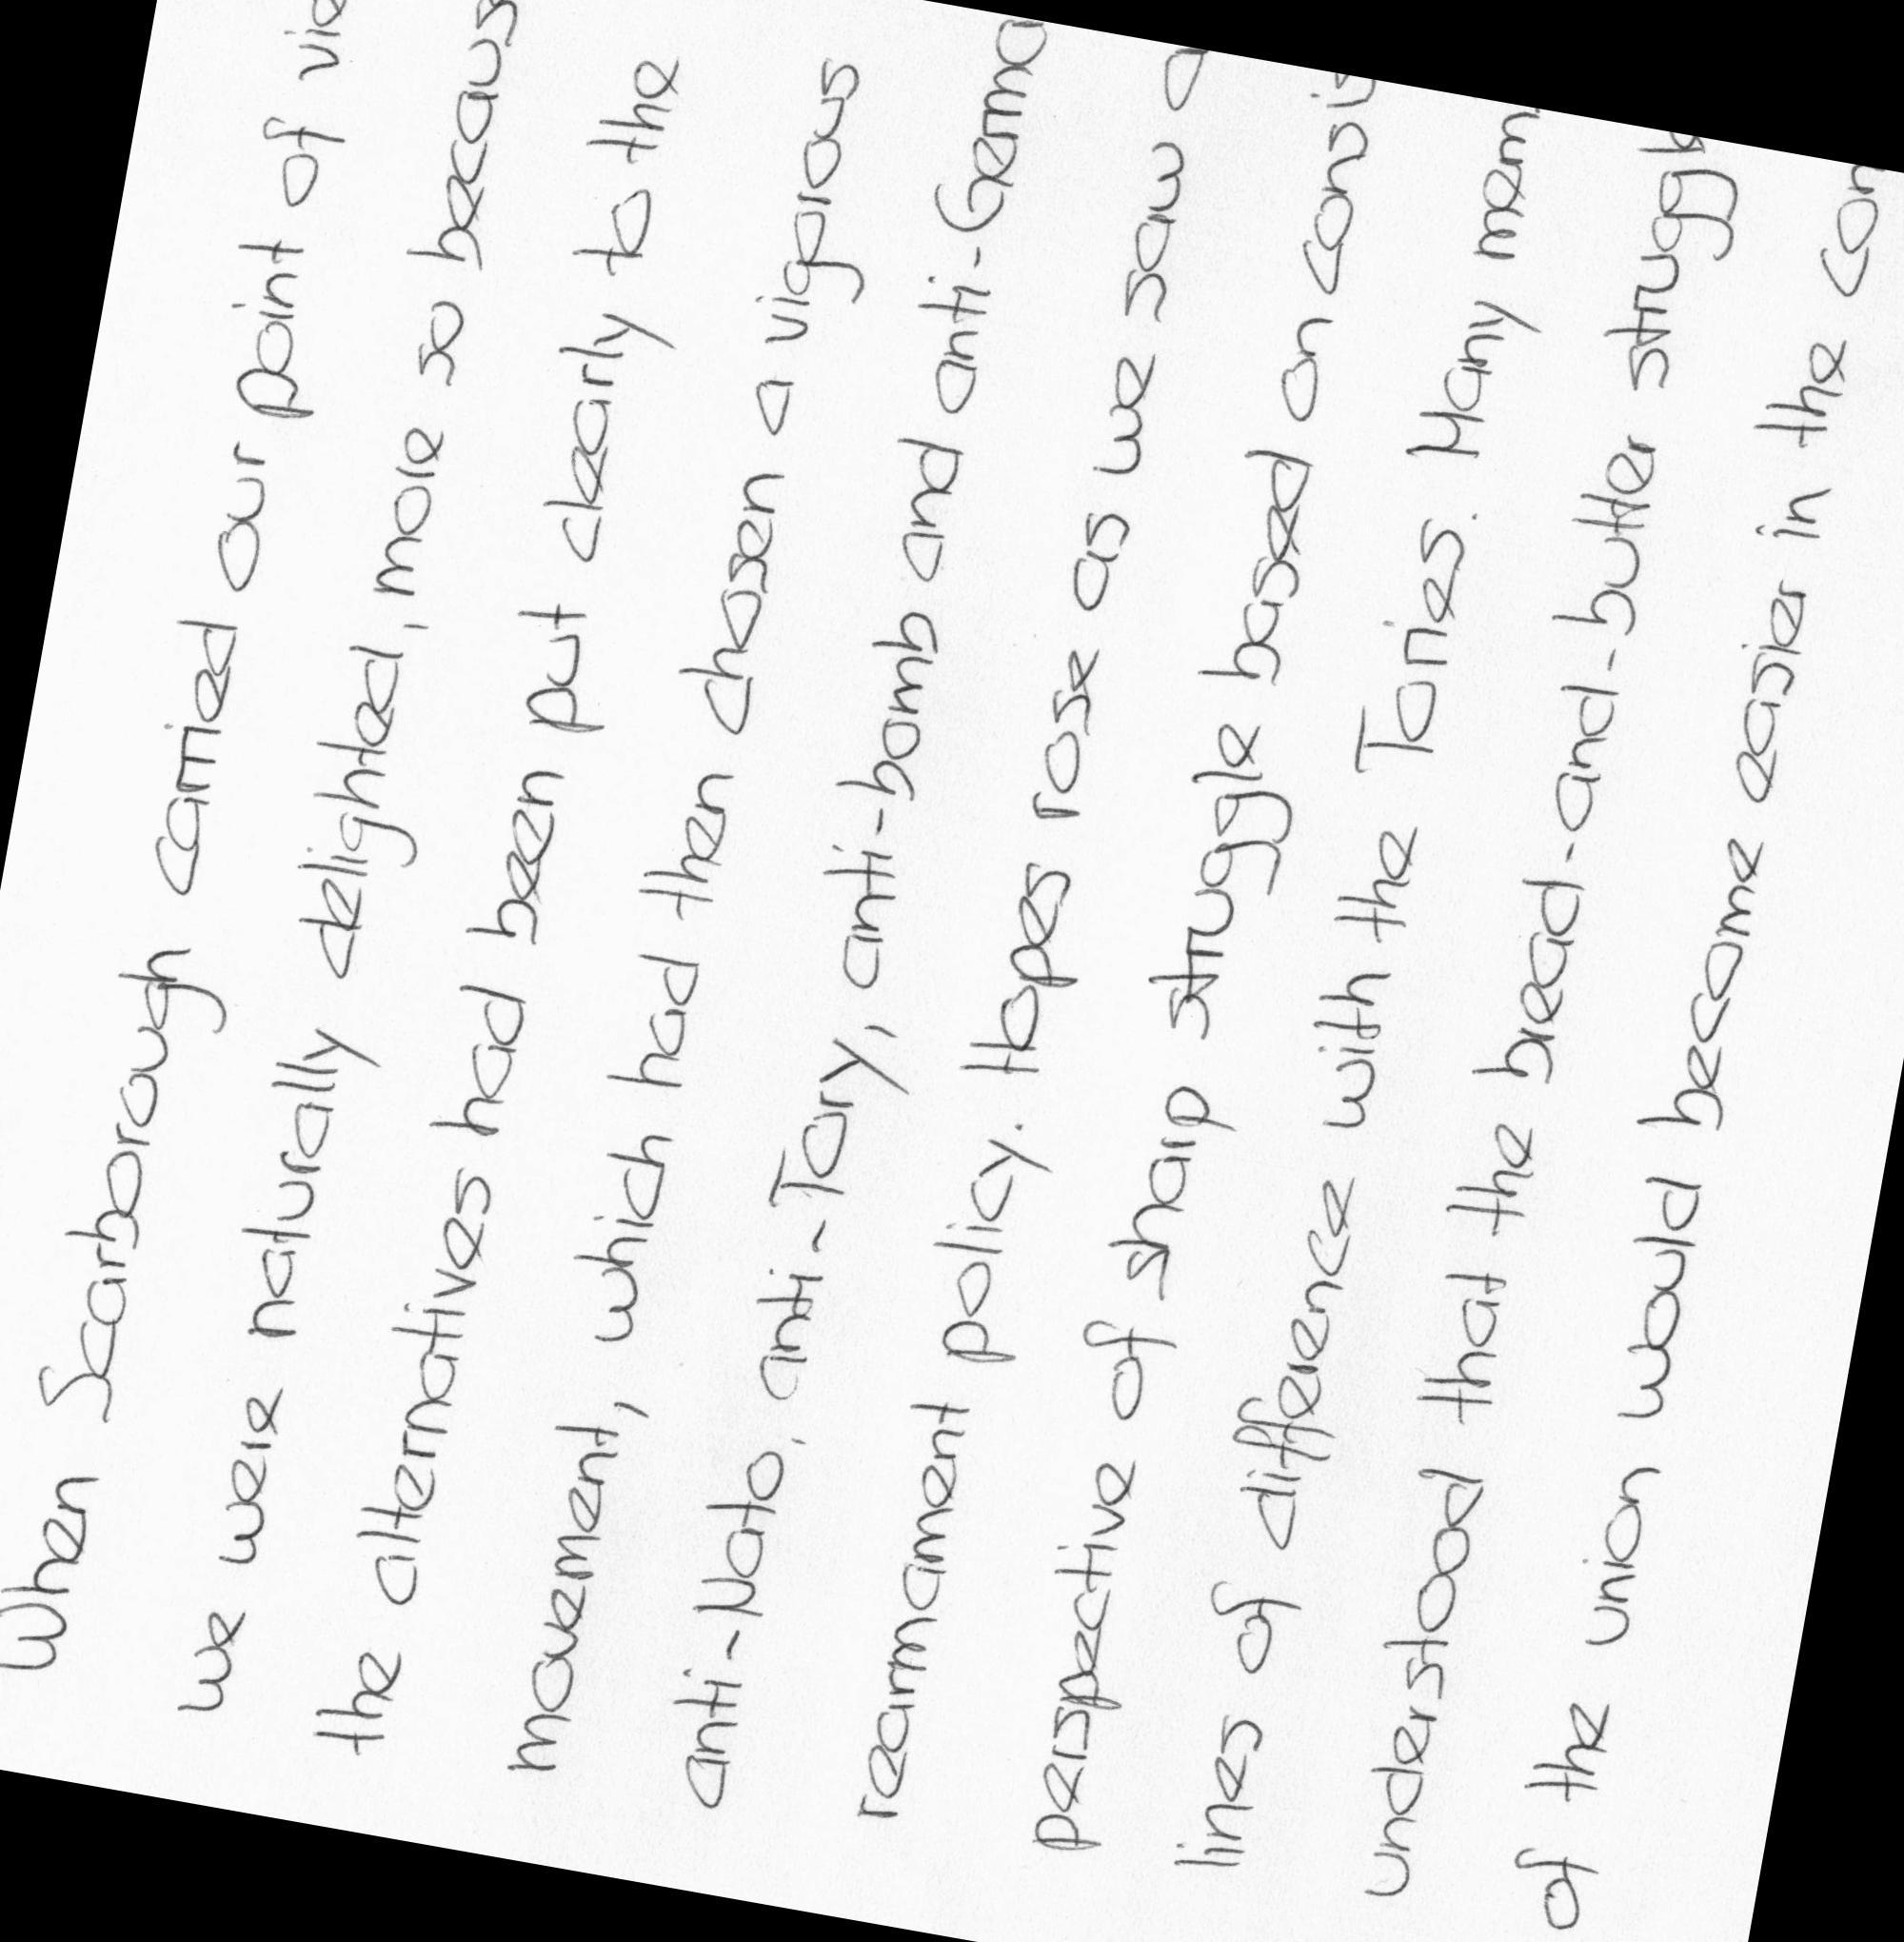 When Scarborough carried our point of
we were naturally delighted, more so
the alternatives had been put clearly to the
movement, which had then chosen a vigorous
anti-Nato, anti-Tory, anti-bomb and
rearmament policy. Hopes rose as we saw
perspective of sharp struggle based on
lines of difference with the Tories. Many
understood that the bread-and-butter
of the union would become easier in the